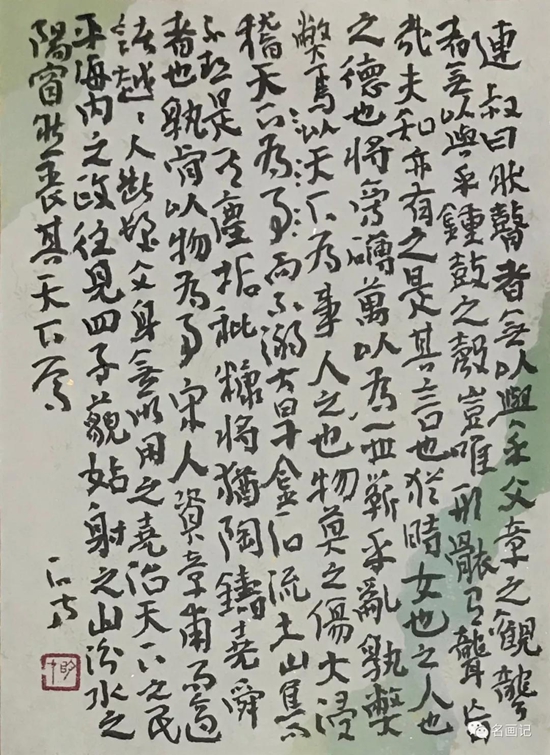 連叔曰然瞽者無以與乎文章之觀聾
者無以與乎鍾鼓之聲豈唯形骸有聾盲
哉夫知亦有之是其言也猶時女也之人也
之德也將旁礴萬以為一世蘄乎亂孰弊
弊焉以天下為事人之也物莫之傷大浸
稽天下為事而不溺大旱金石流土山焦而
不熱是其塵垢粃糠將猶陶鑄堯舜
者也孰肯以物為事宋人資章甫而適
諸越越人斷髮文身無所用之堯治天下之民
平海內之政往見四子藐姑射之山汾水之
陽窅然喪其天下焉
名画记